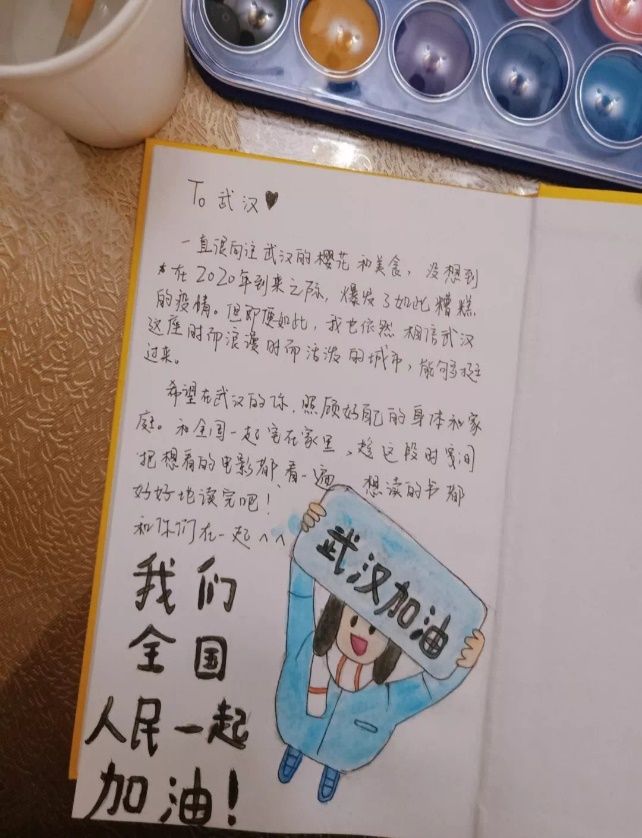 To 武汉♥
一直很向往武汉的樱花和美食，没想到
在2020年到来之际，爆发了如此糟糕
的疫情。但即便如此，我也依然相信武汉
这座时而浪漫时而活泼的城市，能够挺
过来。
希望在武汉的你，照顾好自己的身体和家
庭。和全国一起宅在家里，趁这段时间
把想看的电影都看一遍，想读的书都
好好地读完吧！
和你们在一起^^
武汉加油
我们
全国
人民一起
加油！